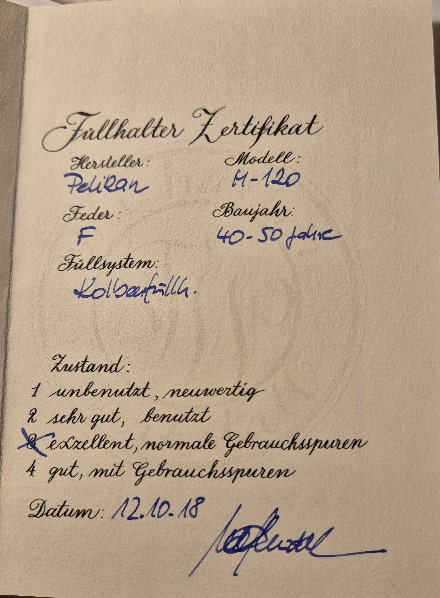 Füllhalter Zertifikat
Hersteller: Modell:
Pelikan M-120
Feder: Baujahr:
F 40-50 Jahre
Füllsystem:
Kolbenfüllh.
Zustand:
1 unbenutzt, neuwertig
2 sehr gut, benutzt
3 exzellent, normale Gebrauchsspuren
4 gut, mit Gebrauchsspuren
Datum: 12.10.18